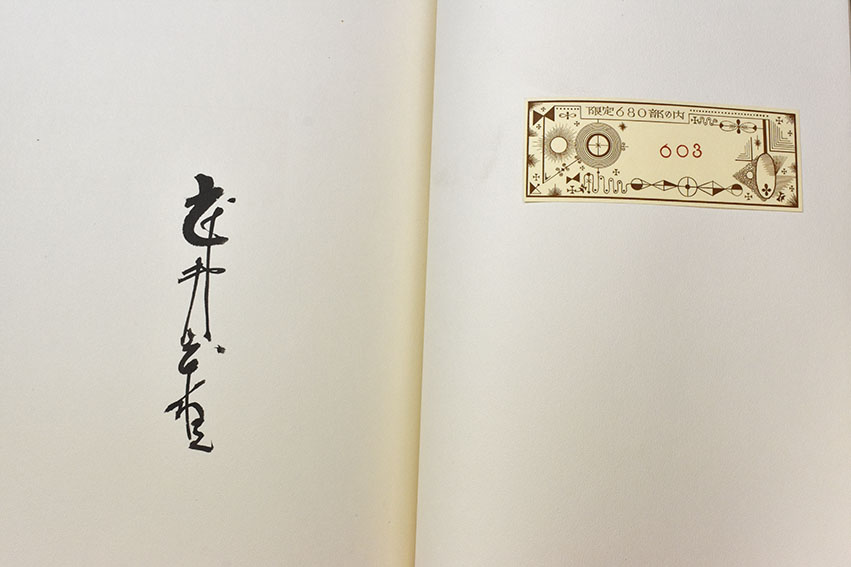 武井武雄
限定680部の内
603